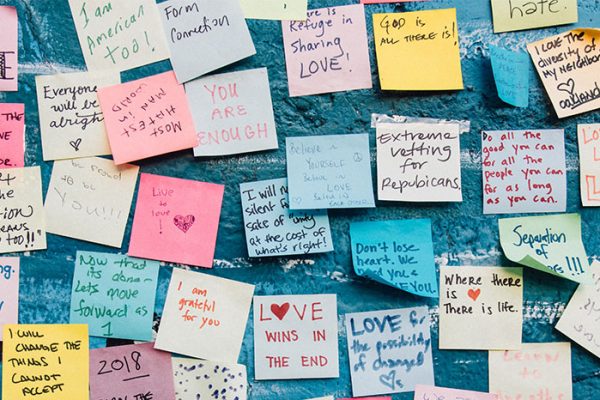 I am
American
too!
Form
Connection
is
Refuge in
Sharing
LOVE!
GOD IS
ALL THERE IS!
hate.
I LOVE the
diversity of
my Neighbor
oakland
Everyone
will be
alright
Most
HATEST
MAN IN
WORLD
YOU ARE
ENOUGH
THE
Believe in
YOURSELF
Believe in
LOVE
Believe in
EACH OTHER
Extreme
vetting for
Repubicans.
Do all the
good you can
for all the
people you can
for as long
as you can.
proud
to be
YOU!!!
Live to
love!
I will
silent
sake of unity
at the cost of
what's right!
too!!
Don't lose
heart. We
need you &
WE LOVE YOU!
Separation
of
Now that
its done-
Lets move
forward as
1
I am
grateful
for you
Where there
is
There is life.
LOVE
WINS IN
THE END
LOVE for
the possibility
of changed
I WILL
CHANGE THE
THINGS I
CANNOT
ACCEPT
2018